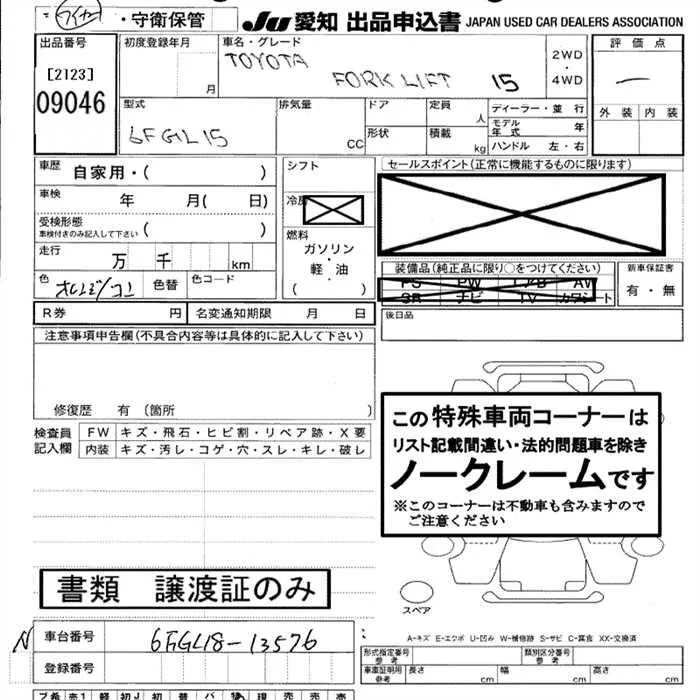 ・守衛保管
JU 愛知 出品申込書 JAPAN USED CAR DEALERS ASSOCIATION
出品番号
[2123]
09046
初度登録年月
月
車名・グレード
TOYOTA
FORK LIFT 15
2WD
・
4WD
評価点
ー
外装 内装
型式
6FGL15
排気量
CC
ドア
形状
定員
人
積載
kg
ディーラー・並行
モデル年式
年
ハンドル 左・右
車歴 自家用・( )
車検 年 月( 日)
受検形態
車検付きのみ記入して下さい
( )
走行 万 千 km
色
色替
色コード
シフト
冷房
燃料
ガソリン
・
軽・油
( )
セールスポイント(正常に機能するものに限ります)
装備品(純正品に限り○をつけてください)
PS PW エアB AW
SR ナビ TV カワシート
新車保証書
有・無
後日品
R券 円
名変通知期限 月 日
注意事項申告欄(不具合内容等は具体的に記入して下さい)
修復歴 有 〔箇所 〕
検査員
記入欄
FW キズ・飛石・ヒビ割・リペア跡・X要
内装 キズ・汚レ・コゲ・穴・スレ・キレ・破レ
この特殊車両コーナーは
リスト記載間違い・法的問題車を除き
ノークレームです
※このコーナーは不動車も含みますので
ご注意ください
書類 譲渡証のみ
スペア
N
車台番号
6FGL18-13576
登録番号
A-キズ E-エクボ U-凹み W-補修跡 S-サビ C-腐食 XX-交換済
形式指定番号
参考
類別区分番号
参考
車庫証明用
参考
長さ cm 幅 cm 高さ cm